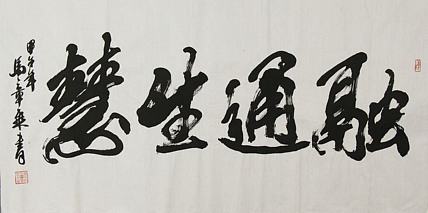 融通生慧
甲午年
馬章乘書